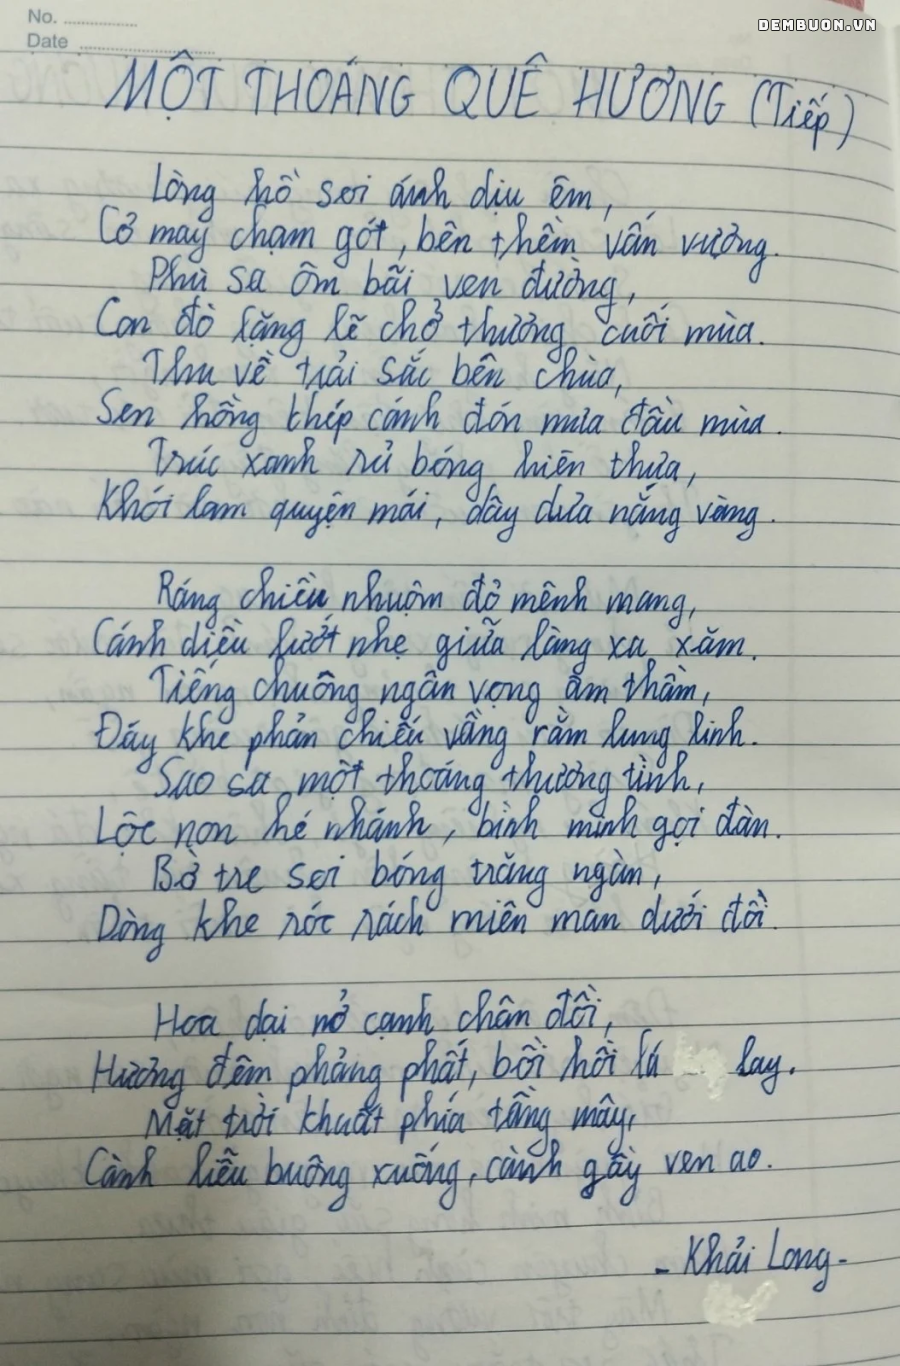 No.
DEMBUON.VN
Date
MỘT THOÁNG QUÊ HƯƠNG (Tiếp)
Lòng hồ soi ánh dịu êm,
Cỏ may chạm gót, bên thềm vấn vương.
Phù sa ôm bãi ven đường,
Con đò lặng lẽ chở thương cuối mùa.
Thu về trải sắc bên chùa,
Sen hồng khép cánh đón mưa đầu mùa.
Trúc xanh rủ bóng hiên thưa,
Khói lam quyện mái, dây dưa nắng vàng.
Ráng chiều nhuộm đỏ mênh mang,
Cánh diều lướt nhẹ giữa làng xa xăm.
Tiếng chuông ngân vọng âm thầm,
Đáy khe phản chiếu vầng rằm lung linh.
Sao sa một thoáng thương tình,
Lộc non hé nhánh, bình minh gọi đàn.
Bờ tre soi bóng trăng ngàn,
Dòng khe róc rách miên man dưới đồi.
Hoa dại nở cạnh chân đồi,
Hương đêm phảng phất, bồi hồi lá lay.
Mặt trời khuất phía tầng mây,
Cành liễu buông xuống, cành gầy ven ao.
- Khải Long -